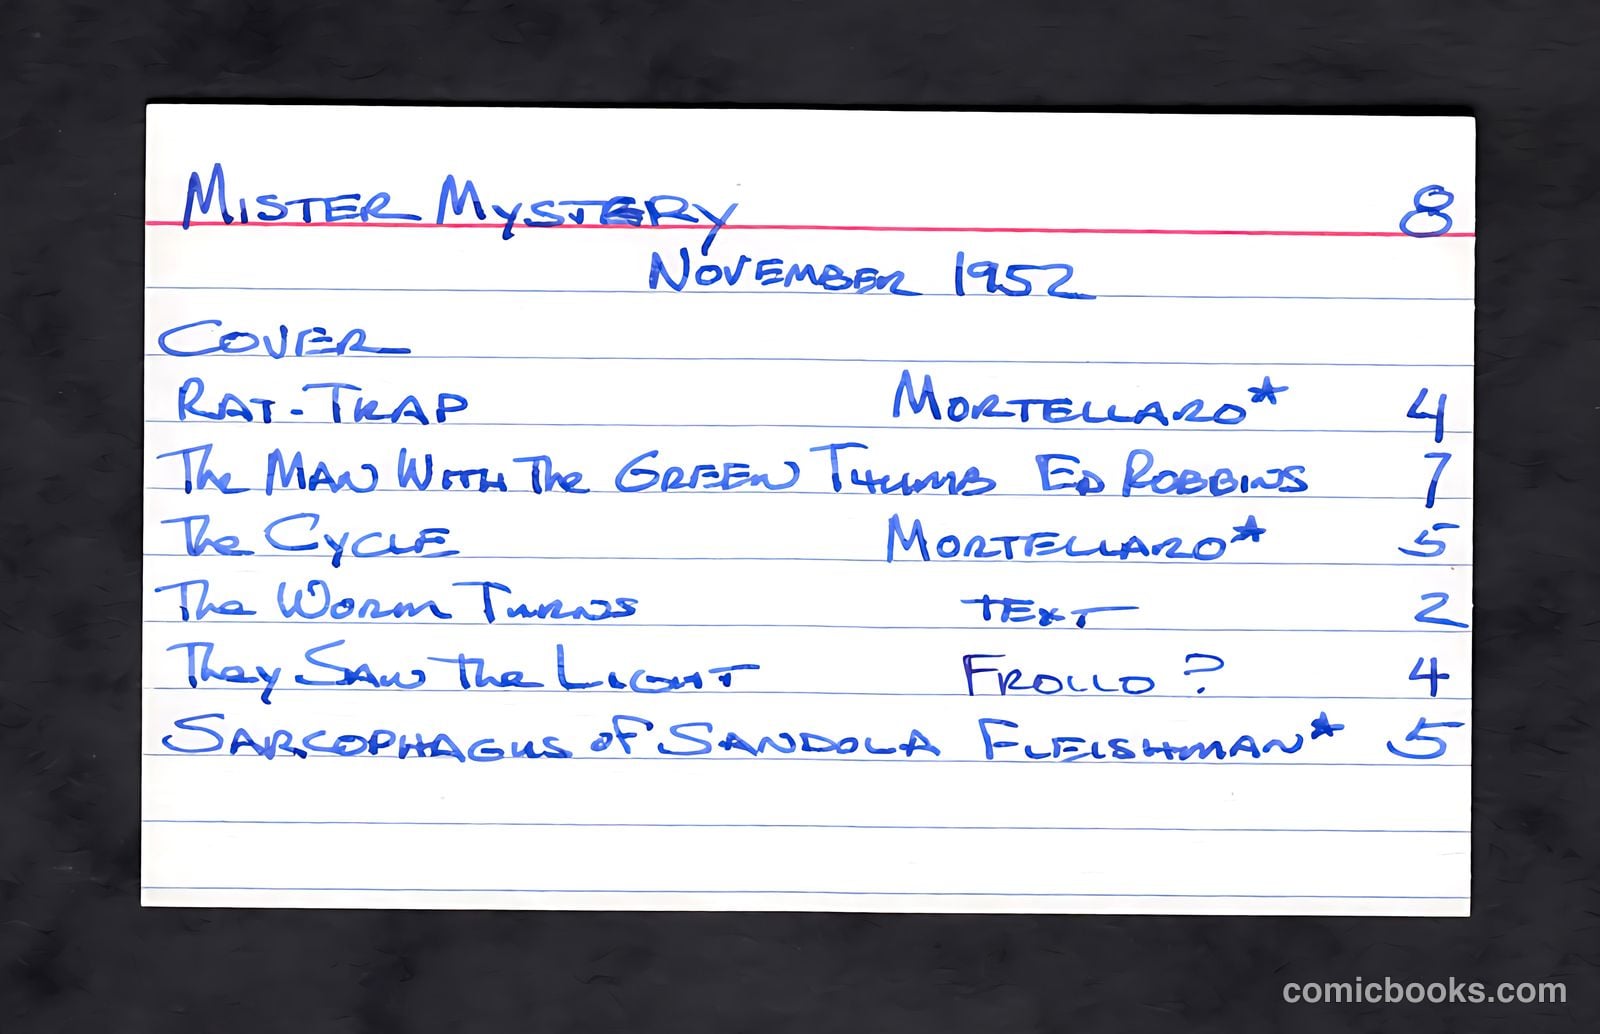 Mister Mystery 8
November 1952
Cover
Rat-Trap Mortellaro* 4
The Man With The Green Thumb Ed Robbins 7
The Cycle Mortellaro* 5
The Worm Turns text 2
They Saw The Light Frollo ? 4
Sarcophagus of Sandola Fleishman* 5
comicbooks.com